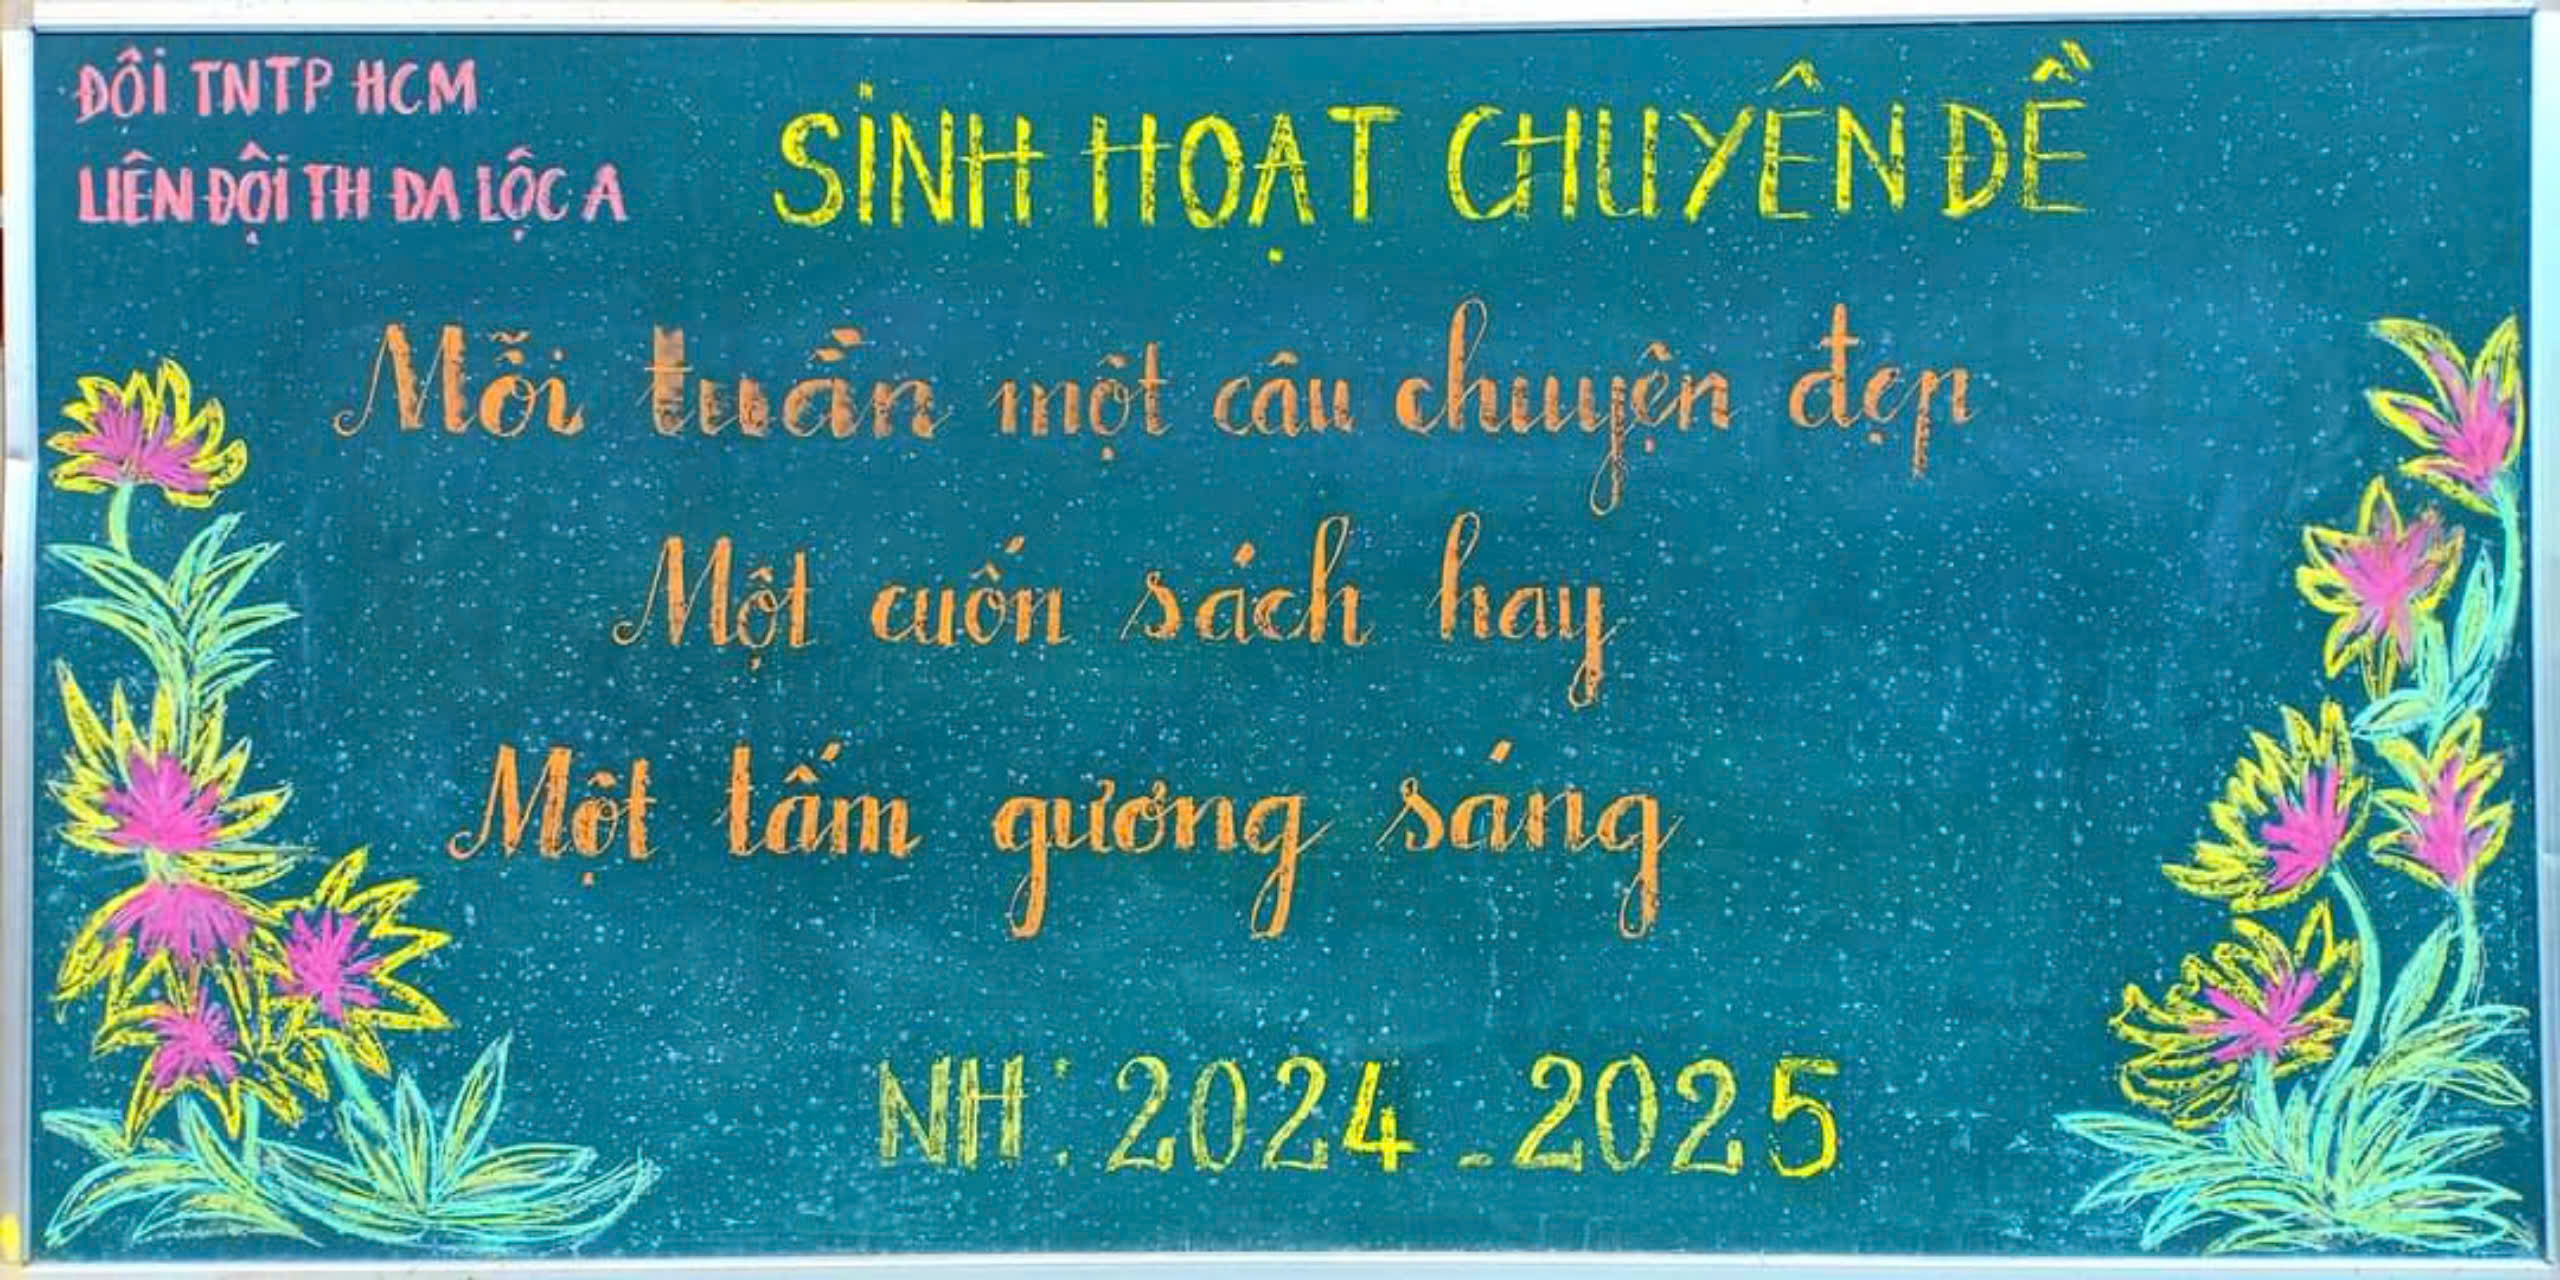 ĐÔI TNTP HCM
LIÊN ĐỘI TH ĐA LỘC A
SINH HOẠT CHUYÊN ĐỀ
Mỗi tuần một câu chuyện đẹp
Một cuốn sách hay
Một tấm gương sáng
NH: 2024-2025